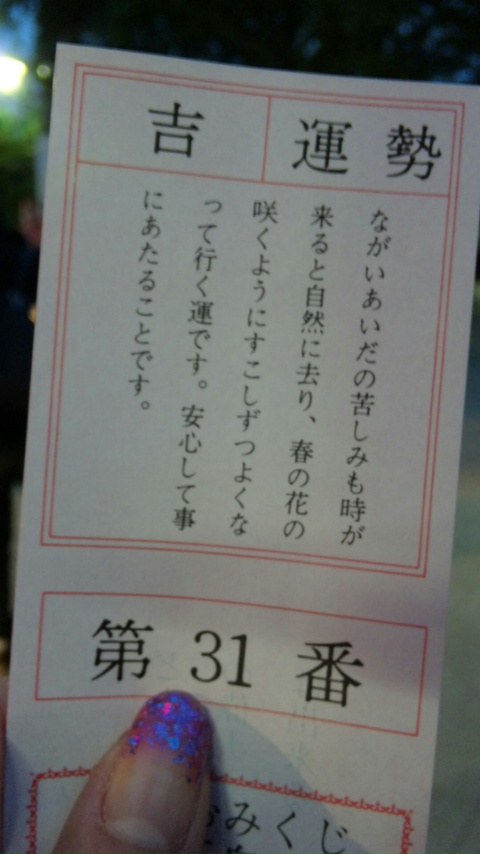 運勢
吉
ながいあいだの苦しみも時が
来ると自然に去り、春の花の
咲くようにすこしずつよくな
って行く運です。安心して事
にあたることです。
第31番
みくじ